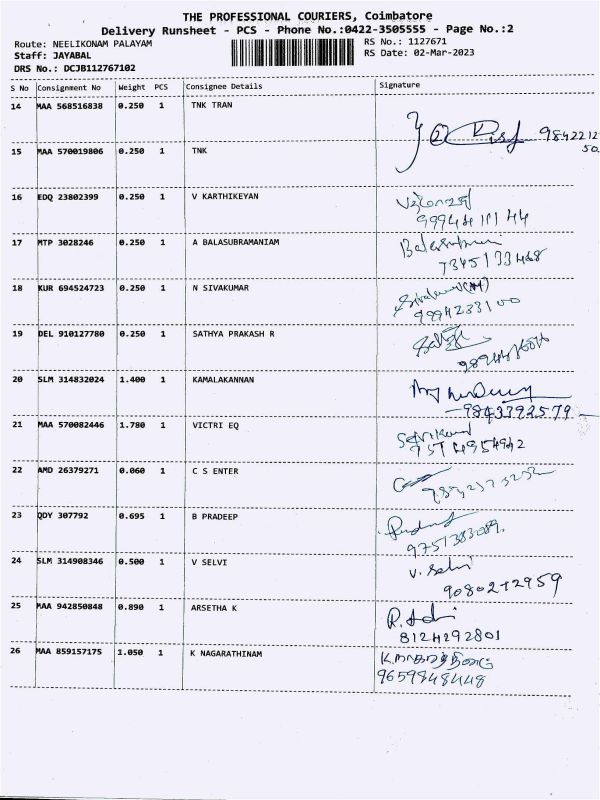 THE PROFESSIONAL COURIERS, Coimbatore
Delivery Runsheet - PCS - Phone No.:0422-3505555 - Page No.:2
Route: NEELIKONAM PALAYAM
RS No.: 1127671
Staff: JAYABAL
RS Date: 02-Mar-2023
DRS No.: DCJB112767102
S No Consignment No Weight PCS Consignee Details Signature
14 MAA 568516838 0.250 1 TNK TRAN
15 MAA 570019806 0.250 1 TNK
16 EDQ 23802399 0.250 1 V KARTHIKEYAN
17 MTP 3028246 0.250 1 A BALASUBRAMANIAM
18 KUR 694524723 0.250 1 N SIVAKUMAR
9994233100
19 DEL 910127780 0.250 1 SATHYA PRAKASH R
20 SLM 314832024 1.400 1 KAMALAKANNAN
9843392579
21 MAA 570082446 1.780 1 VICTRI EQ
22 AMD 26379271 0.060 1 C S ENTER
23 QDY 307792 0.695 1 B PRADEEP
9751383089
24 SLM 314908346 0.500 1 V SELVI
V. Selvi
9080212959
25 MAA 942850848 0.890 1 ARSETHA K
8124292801
26 MAA 859157175 1.050 1 K NAGARATHINAM
K.நாகரத்தினம்
9659848448